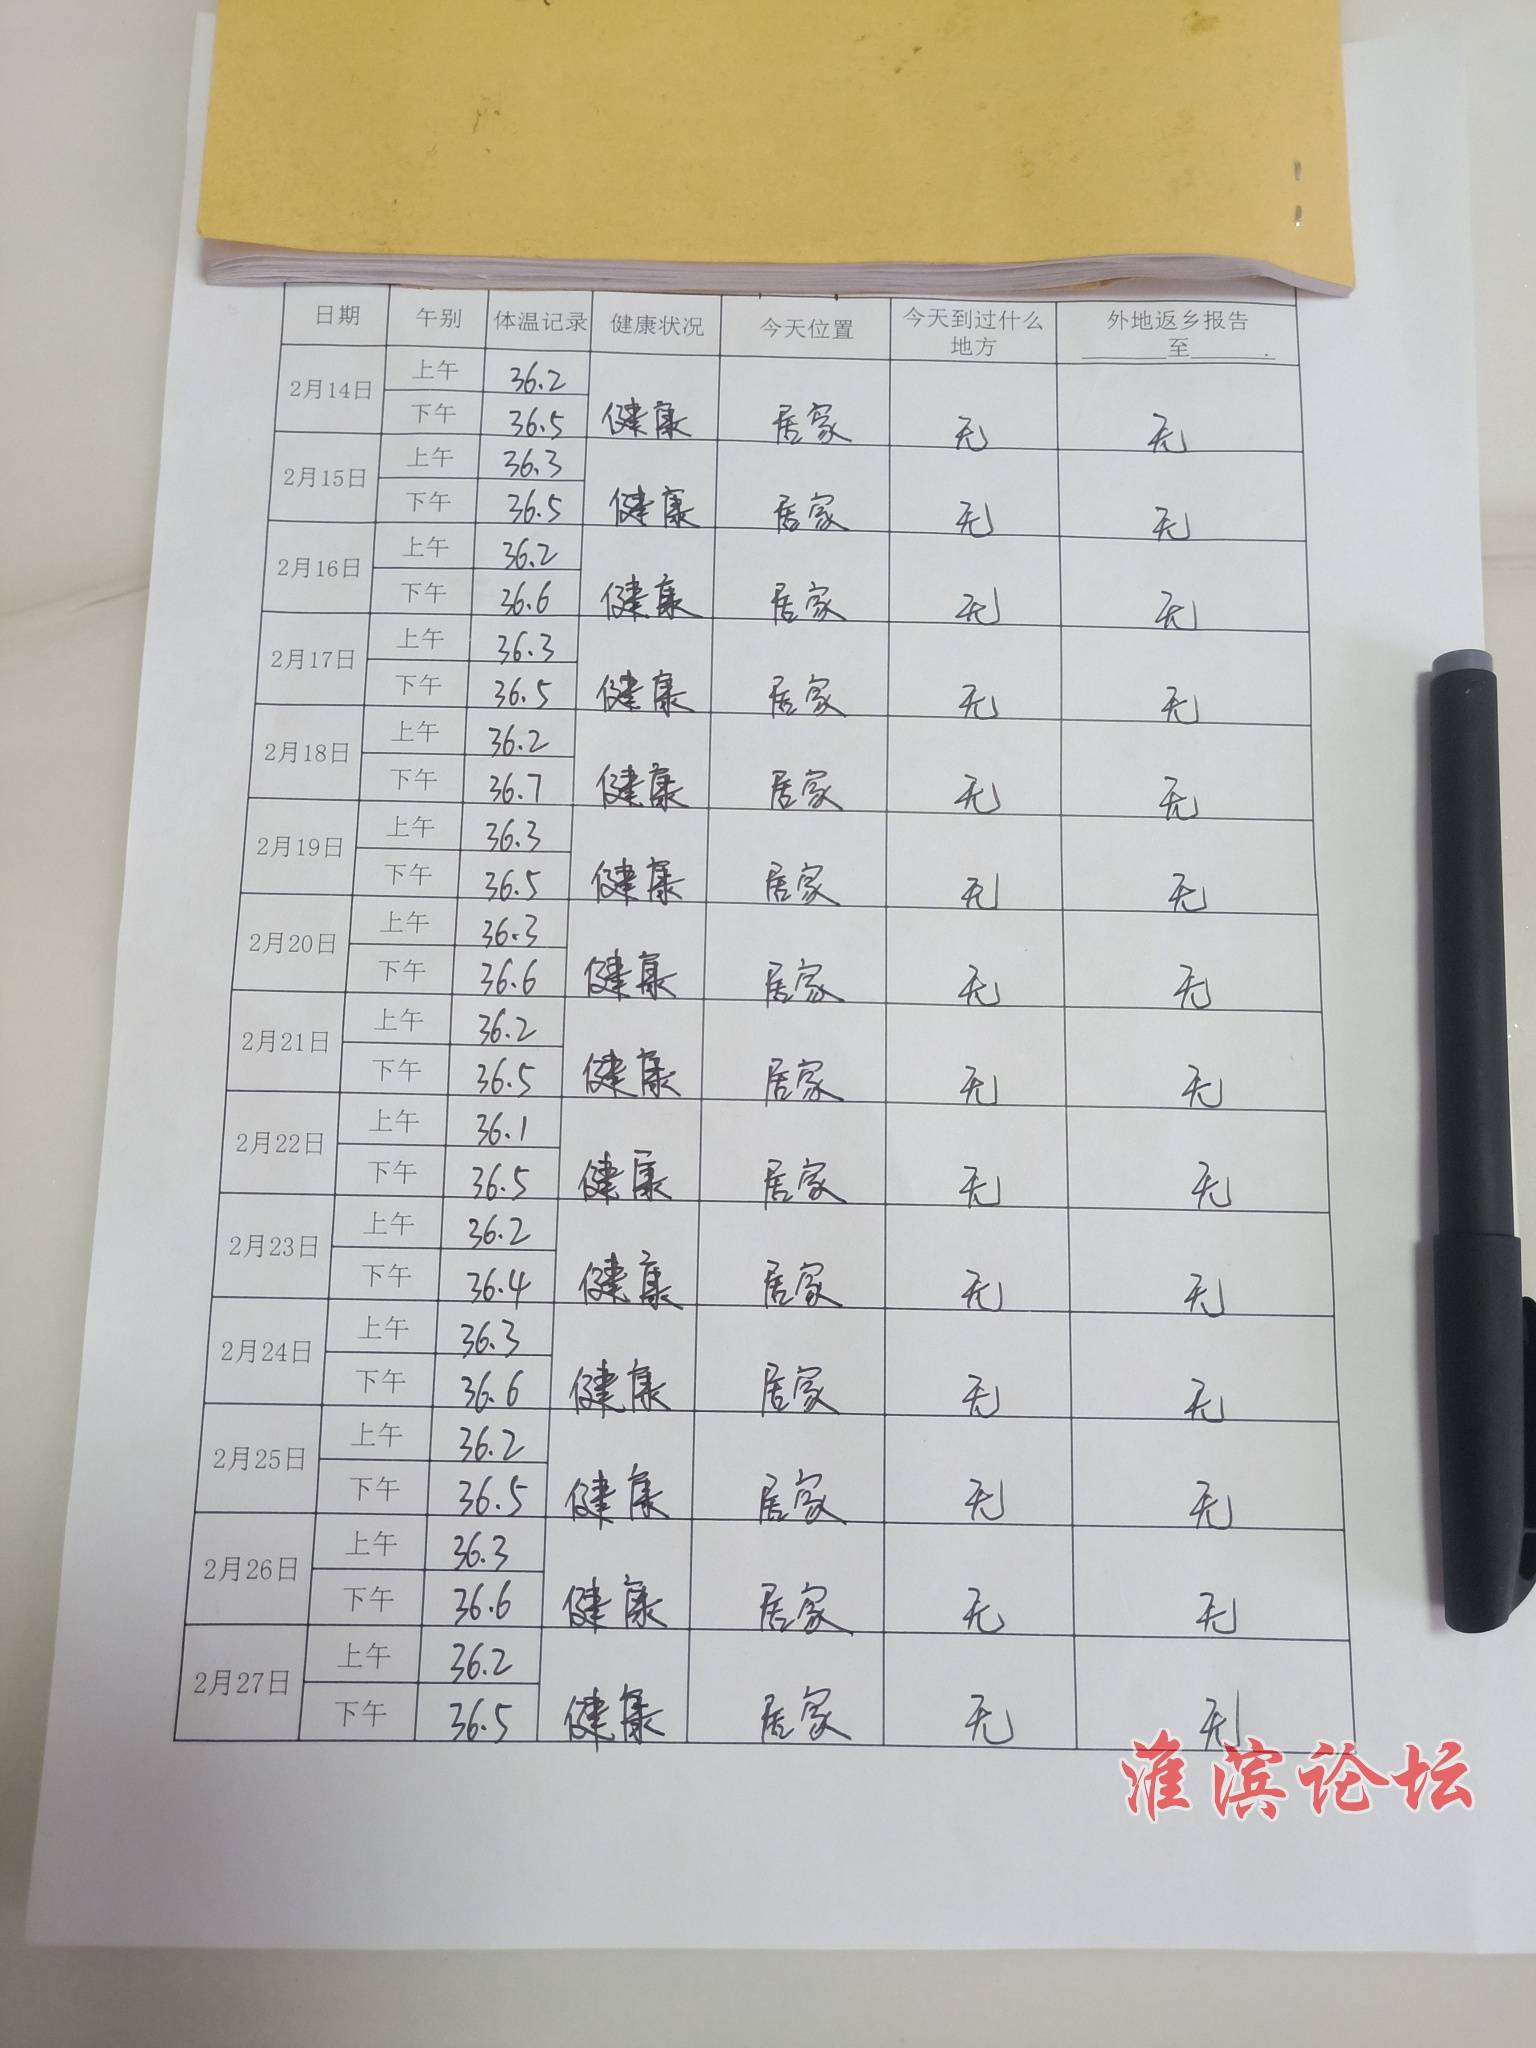 日期 午别 体温记录 健康状况 今天位置 今天到过什么地方 外地返乡报告 至
2月14日 上午 36.2
下午 36.5 健康 居家 无 无
2月15日 上午 36.3
下午 36.5 健康 居家 无 无
2月16日 上午 36.2
下午 36.6 健康 居家 无 无
2月17日 上午 36.3
下午 36.5 健康 居家 无 无
2月18日 上午 36.2
下午 36.7 健康 居家 无 无
2月19日 上午 36.3
下午 36.5 健康 居家 无 无
2月20日 上午 36.3
下午 36.6 健康 居家 无 无
2月21日 上午 36.2
下午 36.5 健康 居家 无 无
2月22日 上午 36.1
下午 36.5 健康 居家 无 无
2月23日 上午 36.2
下午 36.4 健康 居家 无 无
2月24日 上午 36.3
下午 36.6 健康 居家 无 无
2月25日 上午 36.2
下午 36.5 健康 居家 无 无
2月26日 上午 36.3
下午 36.6 健康 居家 无 无
2月27日 上午 36.2
下午 36.5 健康 居家 无 无
淮滨论坛